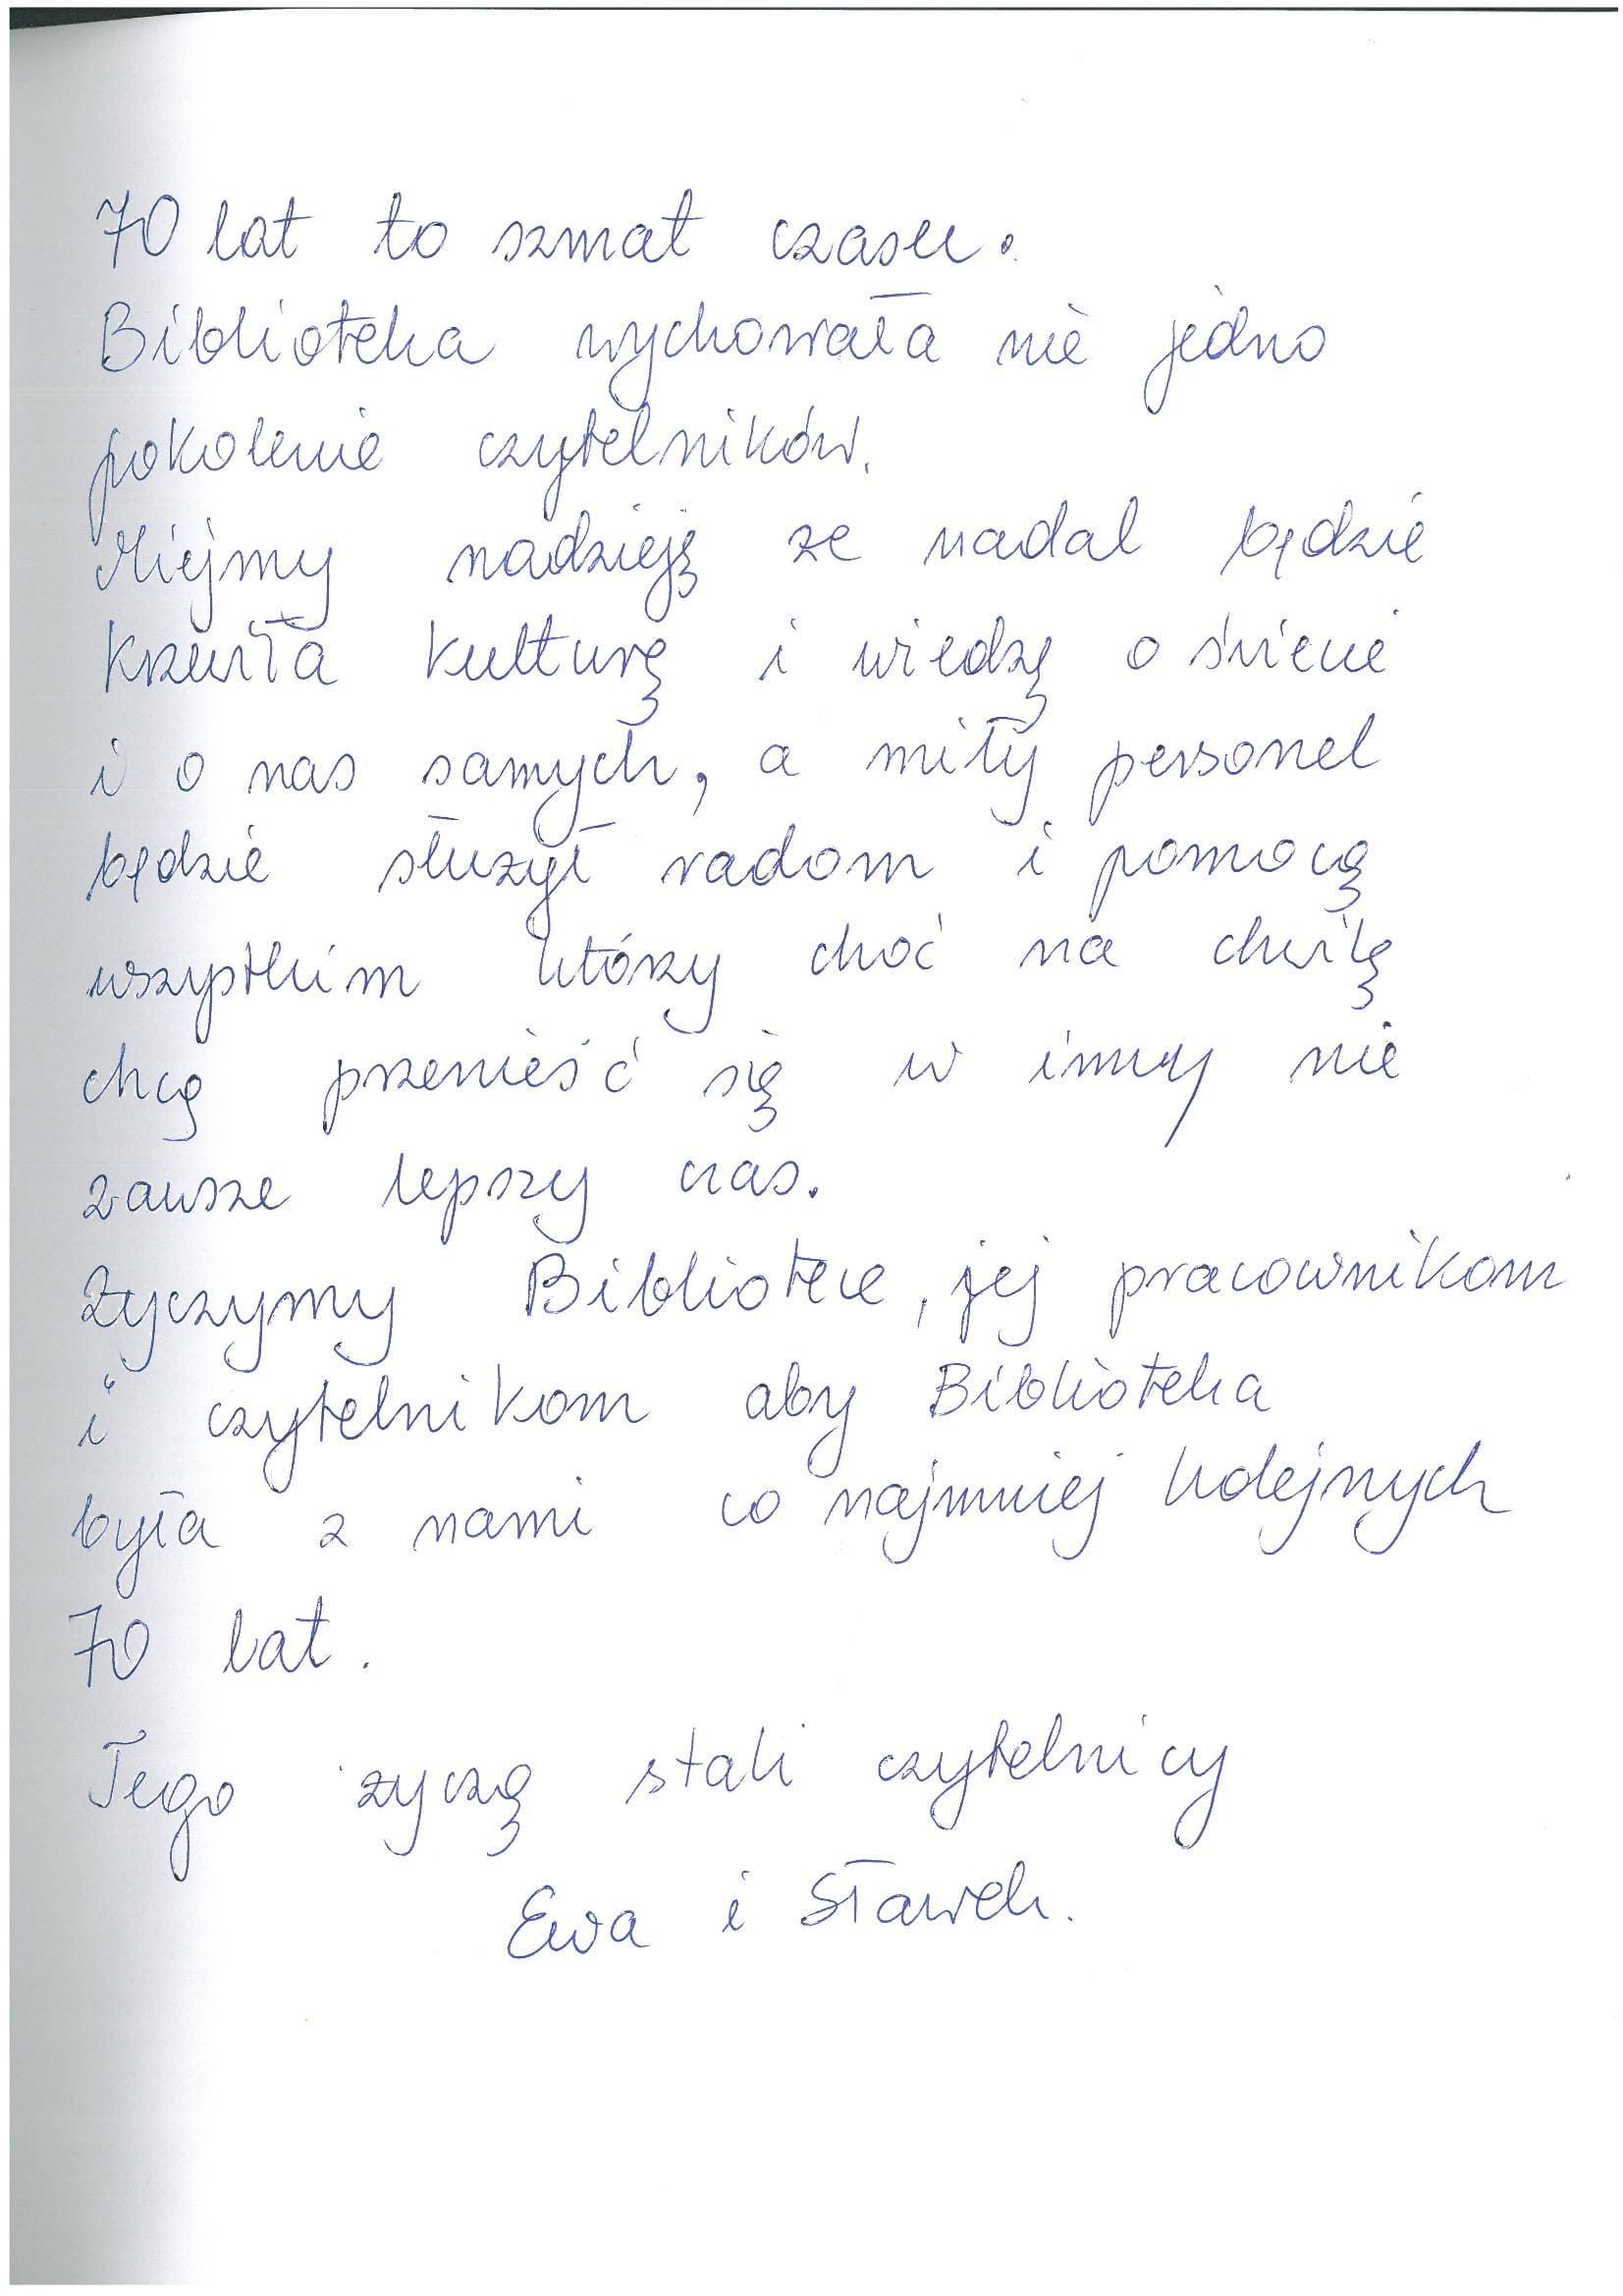 70 lat to szmat czasu.
Biblioteka wychowała nie jedno
pokolenie czytelników.
Miejmy nadzieję ze nadal będzie
krzewiła kulturę i wiedzę o świecie
i o nas samych, a miły personel
będzie służył radom i pomocą
wszystkim którzy choć na chwilę
chcą przenieść się w inny nie
zawsze lepszy czas.
Życzymy Bibliotece, jej pracownikom
i czytelnikom aby Biblioteka
była z nami co najmniej kolejnych
70 lat.
Tego życzą stali czytelnicy
Ewa i Sławek.